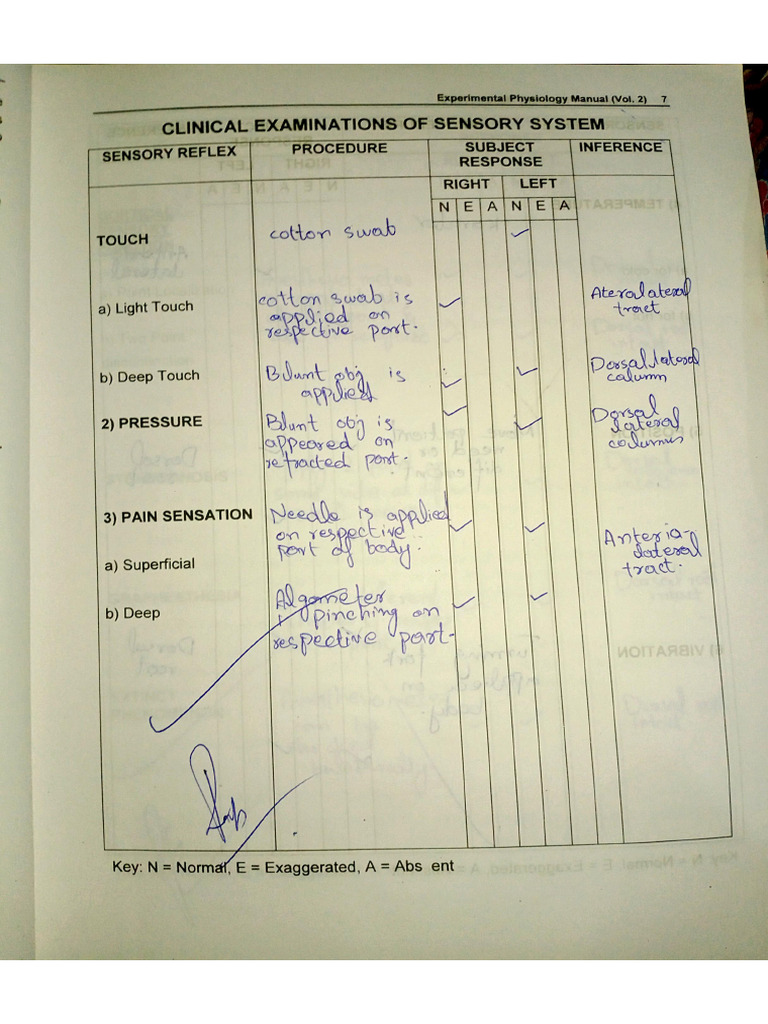 Experimental Physiology Manual (Vol. 2) 7
CLINICAL EXAMINATIONS OF SENSORY SYSTEM
SENSORY REFLEX PROCEDURE SUBJECT RESPONSE INFERENCE
RIGHT LEFT
N E A N E A
TOUCH cotton swab
a) Light Touch cotton swab is Ateralateral
applied on tract
respective part.
b) Deep Touch Blunt obj is Dorsal lateral
applied column
2) PRESSURE Blunt obj is Dorsal
appeared on lateral
refracted part. columns
3) PAIN SENSATION Needle is applied
on respective Anteria-
part of body. lateral
a) Superficial tract.
b) Deep Algometer
pinching on
respective part-
Key: N = Normal, E = Exaggerated, A = Abs ent